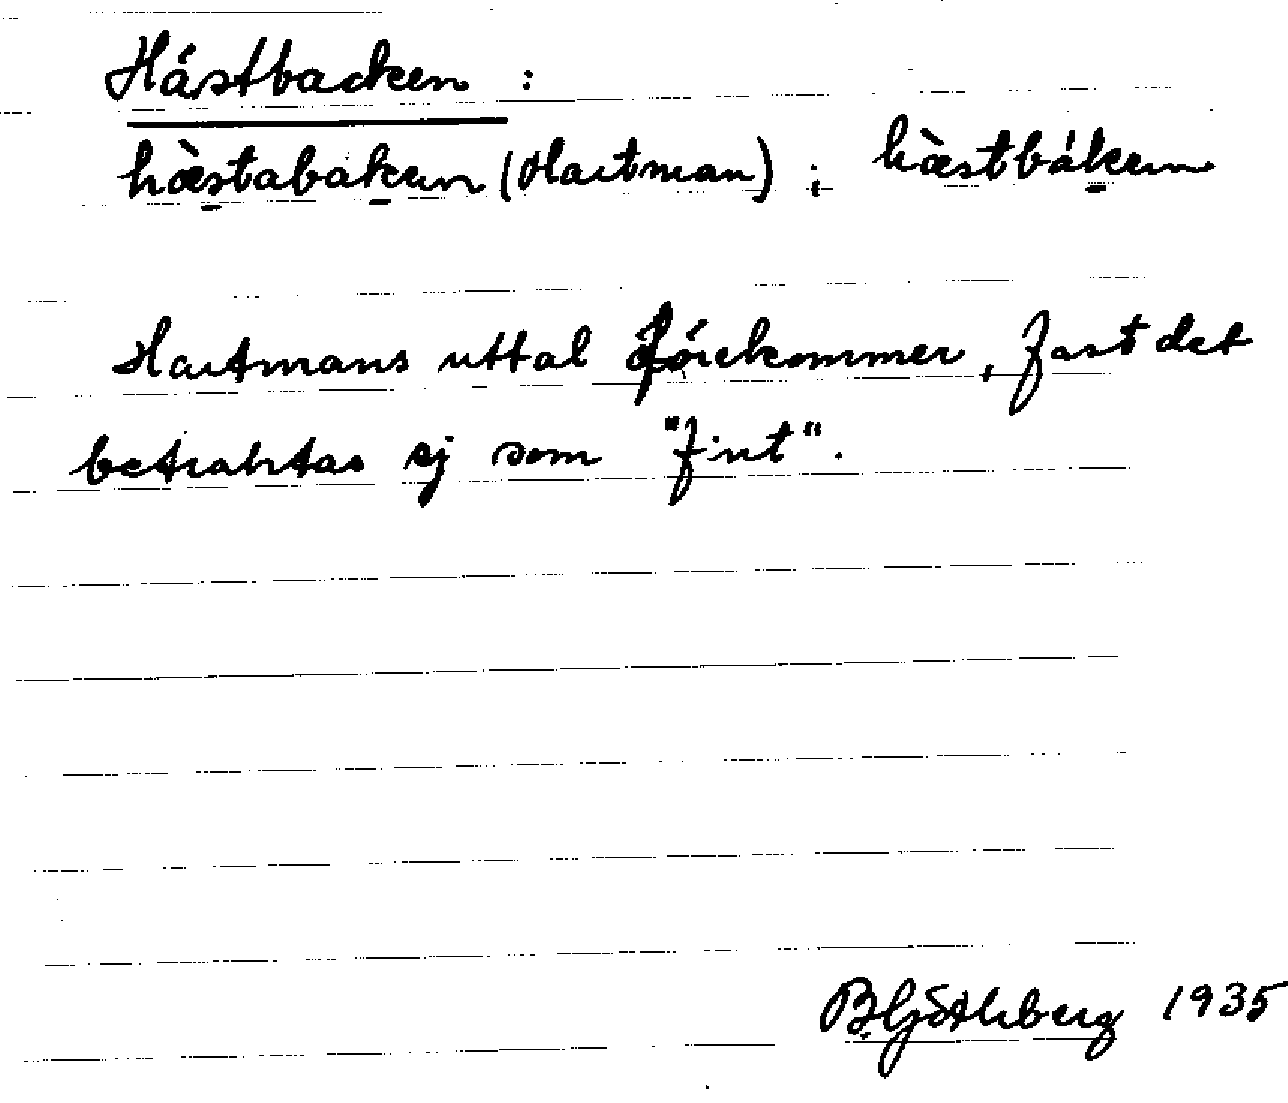 Hästbacken :
hæ̀stabaken (Hartman) ; hæ̀stbáken
Hartmans uttal förekommer, fast det
betraktas ej som "fint".
B. Götherberg 1935